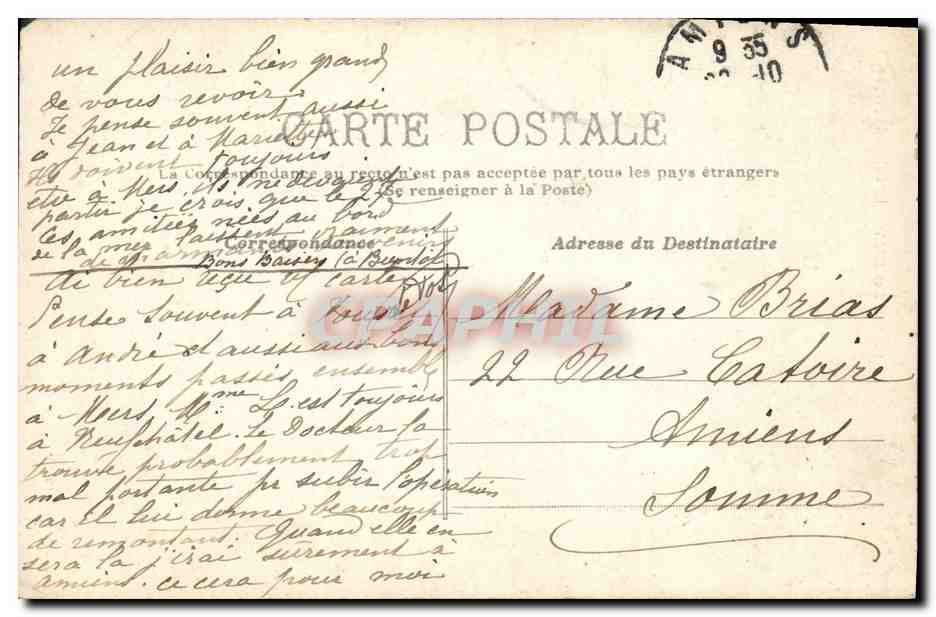 AMIENS
9 35
10
un plaisir bien grand
de vous revoir.
Je pense souvent aussi
à Jean et à Mariette
Ils doivent toujours
être à Mers. ils ne devaient
partir je crois que le 27.
Ces amitiés nées au bord
de la mer laissent vraiment
de charmants souvenirs
Bons Baisers (à Bientôt
CARTE POSTALE
La Correspondance au recto n'est pas acceptée par tous les pays étrangers
(Se renseigner à la Poste)
Correspondance
Ai bien reçu v/ carte
Pense souvent à vous
à André et aussi aux bons
moments passés ensemble
à Mers. Mme L. est toujours
à Neufchâtel. Le Docteur la
trouve probablement trop
mal portante pr subir l'opération
car il lui donne beaucoup
de remontant. Quand elle en
sera la j'irai surement à
amiens. ce cera pour moi
Adresse du Destinataire
Madame Brias
22 Rue Catoire
Amiens
Somme
CPAPHIL